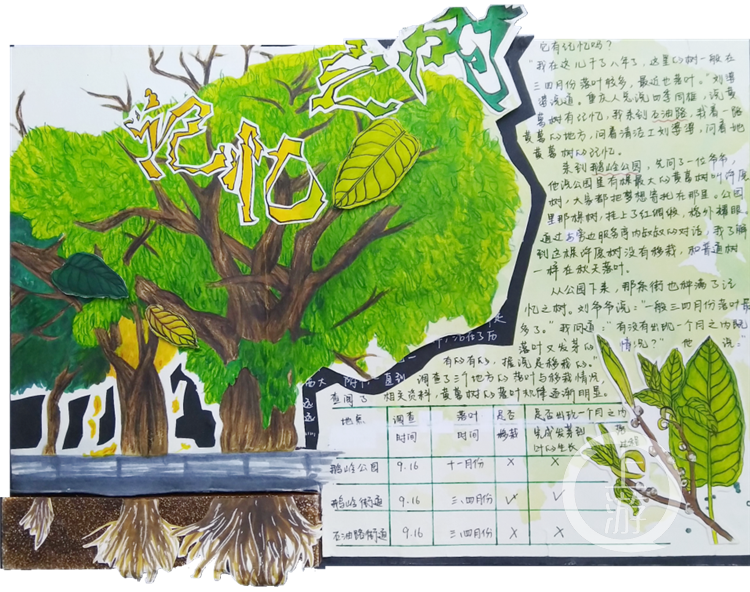 记忆
它有记忆吗？
"我在这儿干了八年了，这里的树一般在
三四月份落叶较多，最近也落叶。"刘婆
婆说道。重庆人总说四季同催，说黄
葛树有记忆，我来到石油路，我看一路
黄葛的地方，问着清洁工刘婆婆，问着她
黄葛树的记忆。
来到鹅岭公园，先问了一位爷爷，
他说公园里有棵最大的黄葛树叫许愿
树，大家都把梦想寄托在那里。公园
里那棵树，挂上了红绸缎，格外耀眼。
通过与旁边服务亭内叔叔的对话，我了解
到这棵许愿树没有移栽，和普通树
一样在秋天落叶。
从公园下来，那条街也种满了记
忆之树。刘爷爷说："一般三四月份落叶最
多了。"我问道："有没有出现一个月之内既
落叶又发芽的情况？"他说："
有的有的，据说是移栽的。"
调查了三个地方的落叶与移栽情况，
查阅了相关资料，黄葛树的落叶规律逐渐明显。
地点 调查时间 落叶时间 是否移栽 是否出现一个月之内完成发芽到叶的生长
鹅岭公园 9.16 十一月份 × ×
鹅岭街道 9.16 三、四月份 √ √
石油路街道 9.16 三、四月份 × ×
上游